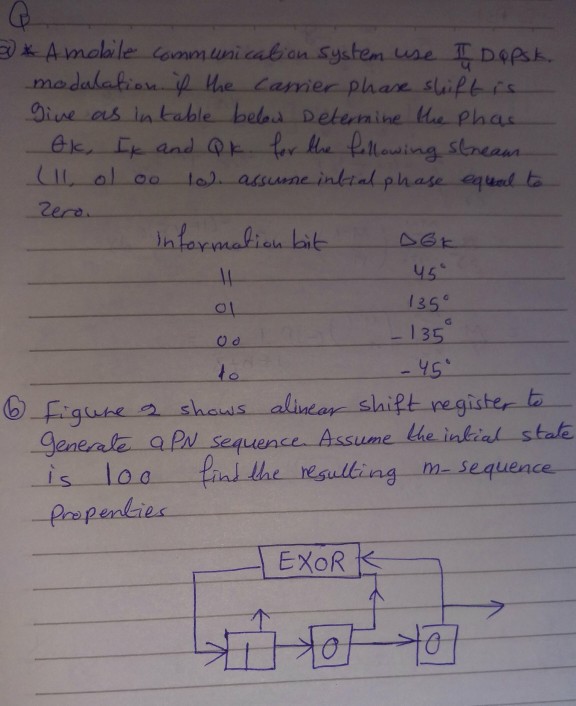 Q
a) * A mobile communication system use π/4 DQPSK.
modulation. if the carrier phase shift is
give as in table below Determine the phas
θk, Ik and Qk. for the following stream
(11, 01 00 10). assume intial phase equal to
zero.
information bit ΔθK
11 45°
01 135°
00 -135°
10 -45°
(b) Figure 2 shows alinear shift register to
generate a PN sequence. Assume the intial state
is 100 find the resulting m-sequence
properties
EXOR
1 0 0